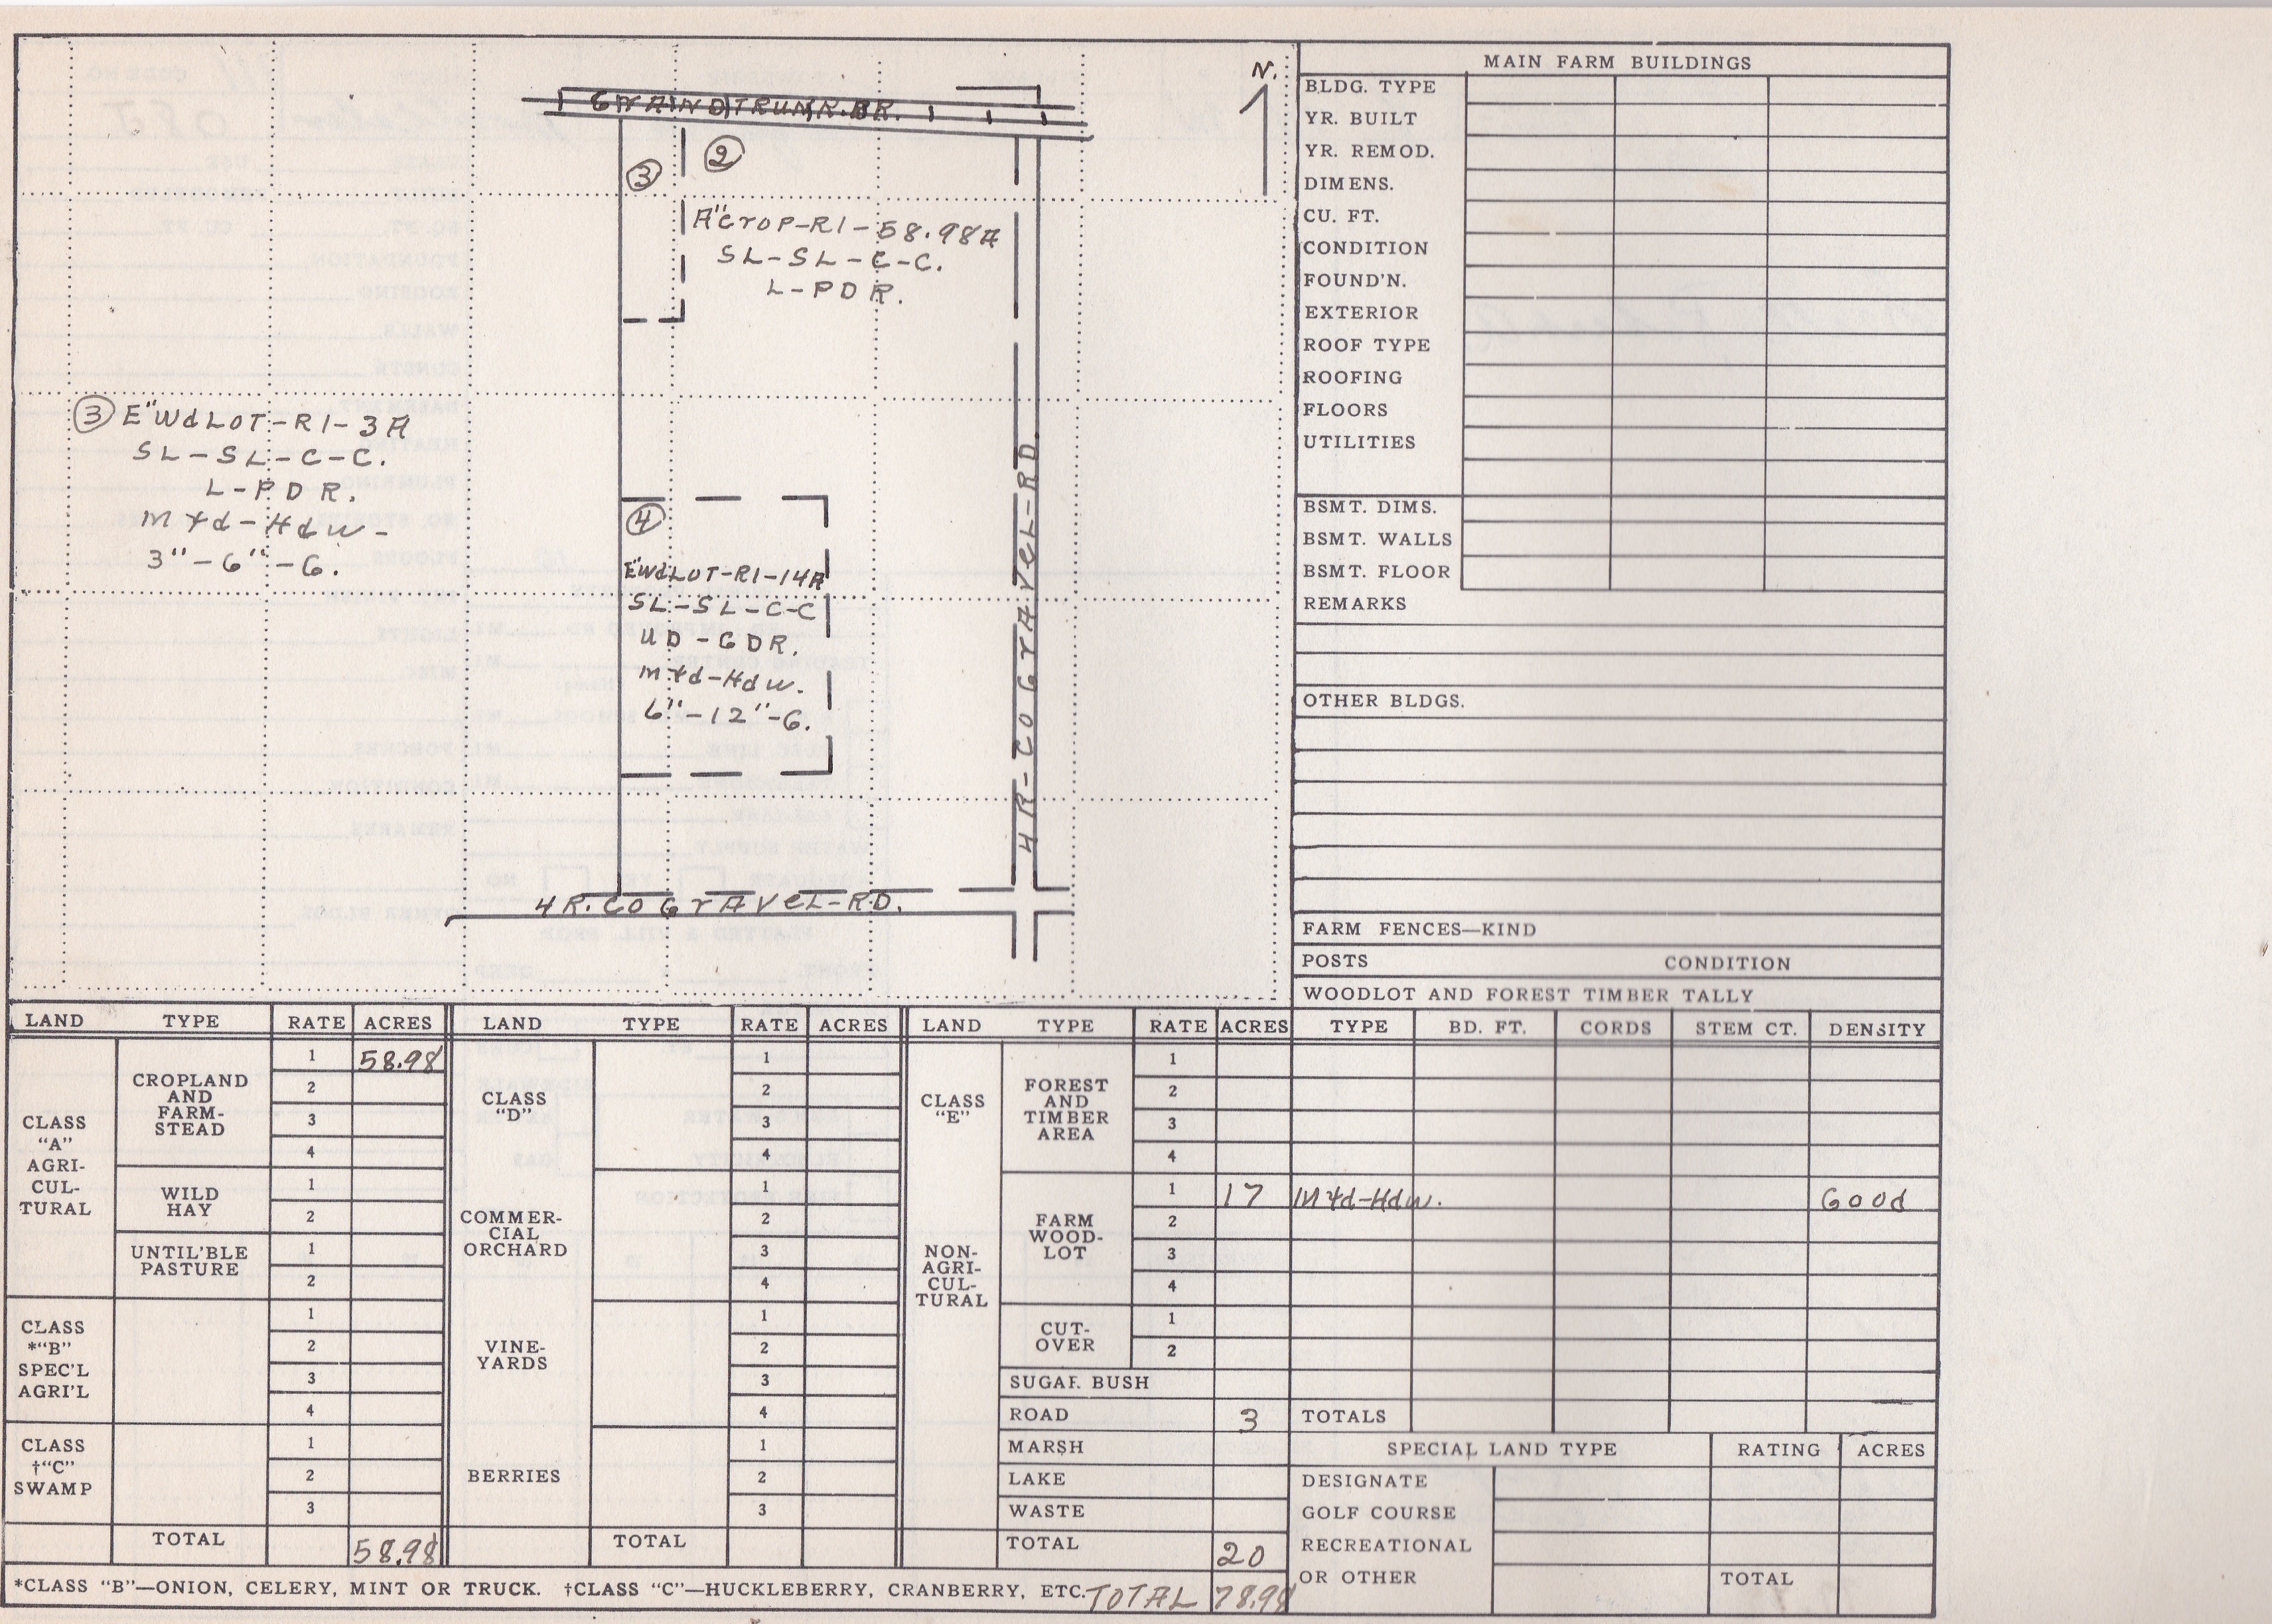 N.
GRAND TRUNK R.R.
③
②
A" Crop-R1-58.98A
SL-SL-C-C.
L-PDR.
③ E" WdLOT-R1-3A
SL-SL-C-C.
L-PDR.
Mxd-Hdw-
3"-6"-G.
④
E" WdLOT-R1-14A
SL-SL-C-C
UD-GDR.
Mxd-Hdw.
6"-12"-G.
4R-CO GrAVEL-RD.
4R.CO GrAVEL-RD.
MAIN FARM BUILDINGS
BLDG. TYPE
YR. BUILT
YR. REMOD.
DIMENS.
CU. FT.
CONDITION
FOUND'N.
EXTERIOR
ROOF TYPE
ROOFING
FLOORS
UTILITIES
BSMT. DIMS.
BSMT. WALLS
BSMT. FLOOR
REMARKS
OTHER BLDGS.
FARM FENCES—KIND
POSTS CONDITION
WOODLOT AND FOREST TIMBER TALLY
LAND TYPE RATE ACRES LAND TYPE RATE ACRES LAND TYPE RATE ACRES TYPE BD. FT. CORDS STEM CT. DENSITY
CLASS
"A"
AGRI-
CUL-
TURAL
CROPLAND
AND
FARM-
STEAD
1 58.98
2
3
4
WILD
HAY
1
2
UNTIL'BLE
PASTURE
1
2
CLASS
*"B"
SPEC'L
AGRI'L
1
2
3
4
CLASS
†"C"
SWAMP
1
2
3
TOTAL 58.98
CLASS
"D"
1
2
3
4
COMMER-
CIAL
ORCHARD
1
2
3
4
VINE-
YARDS
1
2
3
4
BERRIES
1
2
3
TOTAL
CLASS
"E"
NON-
AGRI-
CUL-
TURAL
FOREST
AND
TIMBER
AREA
1
2
3
4
FARM
WOOD-
LOT
1 17 Mxd-Hdw. Good
2
3
4
CUT-
OVER
1
2
SUGAR BUSH
ROAD 3 TOTALS
MARSH
LAKE
WASTE
TOTAL 20
SPECIAL LAND TYPE RATING ACRES
DESIGNATE
GOLF COURSE
RECREATIONAL
OR OTHER TOTAL
*CLASS "B"—ONION, CELERY, MINT OR TRUCK. †CLASS "C"—HUCKLEBERRY, CRANBERRY, ETC. TOTAL 78.98